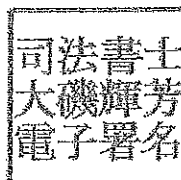 司法書士
大磯輝芳
電子署名